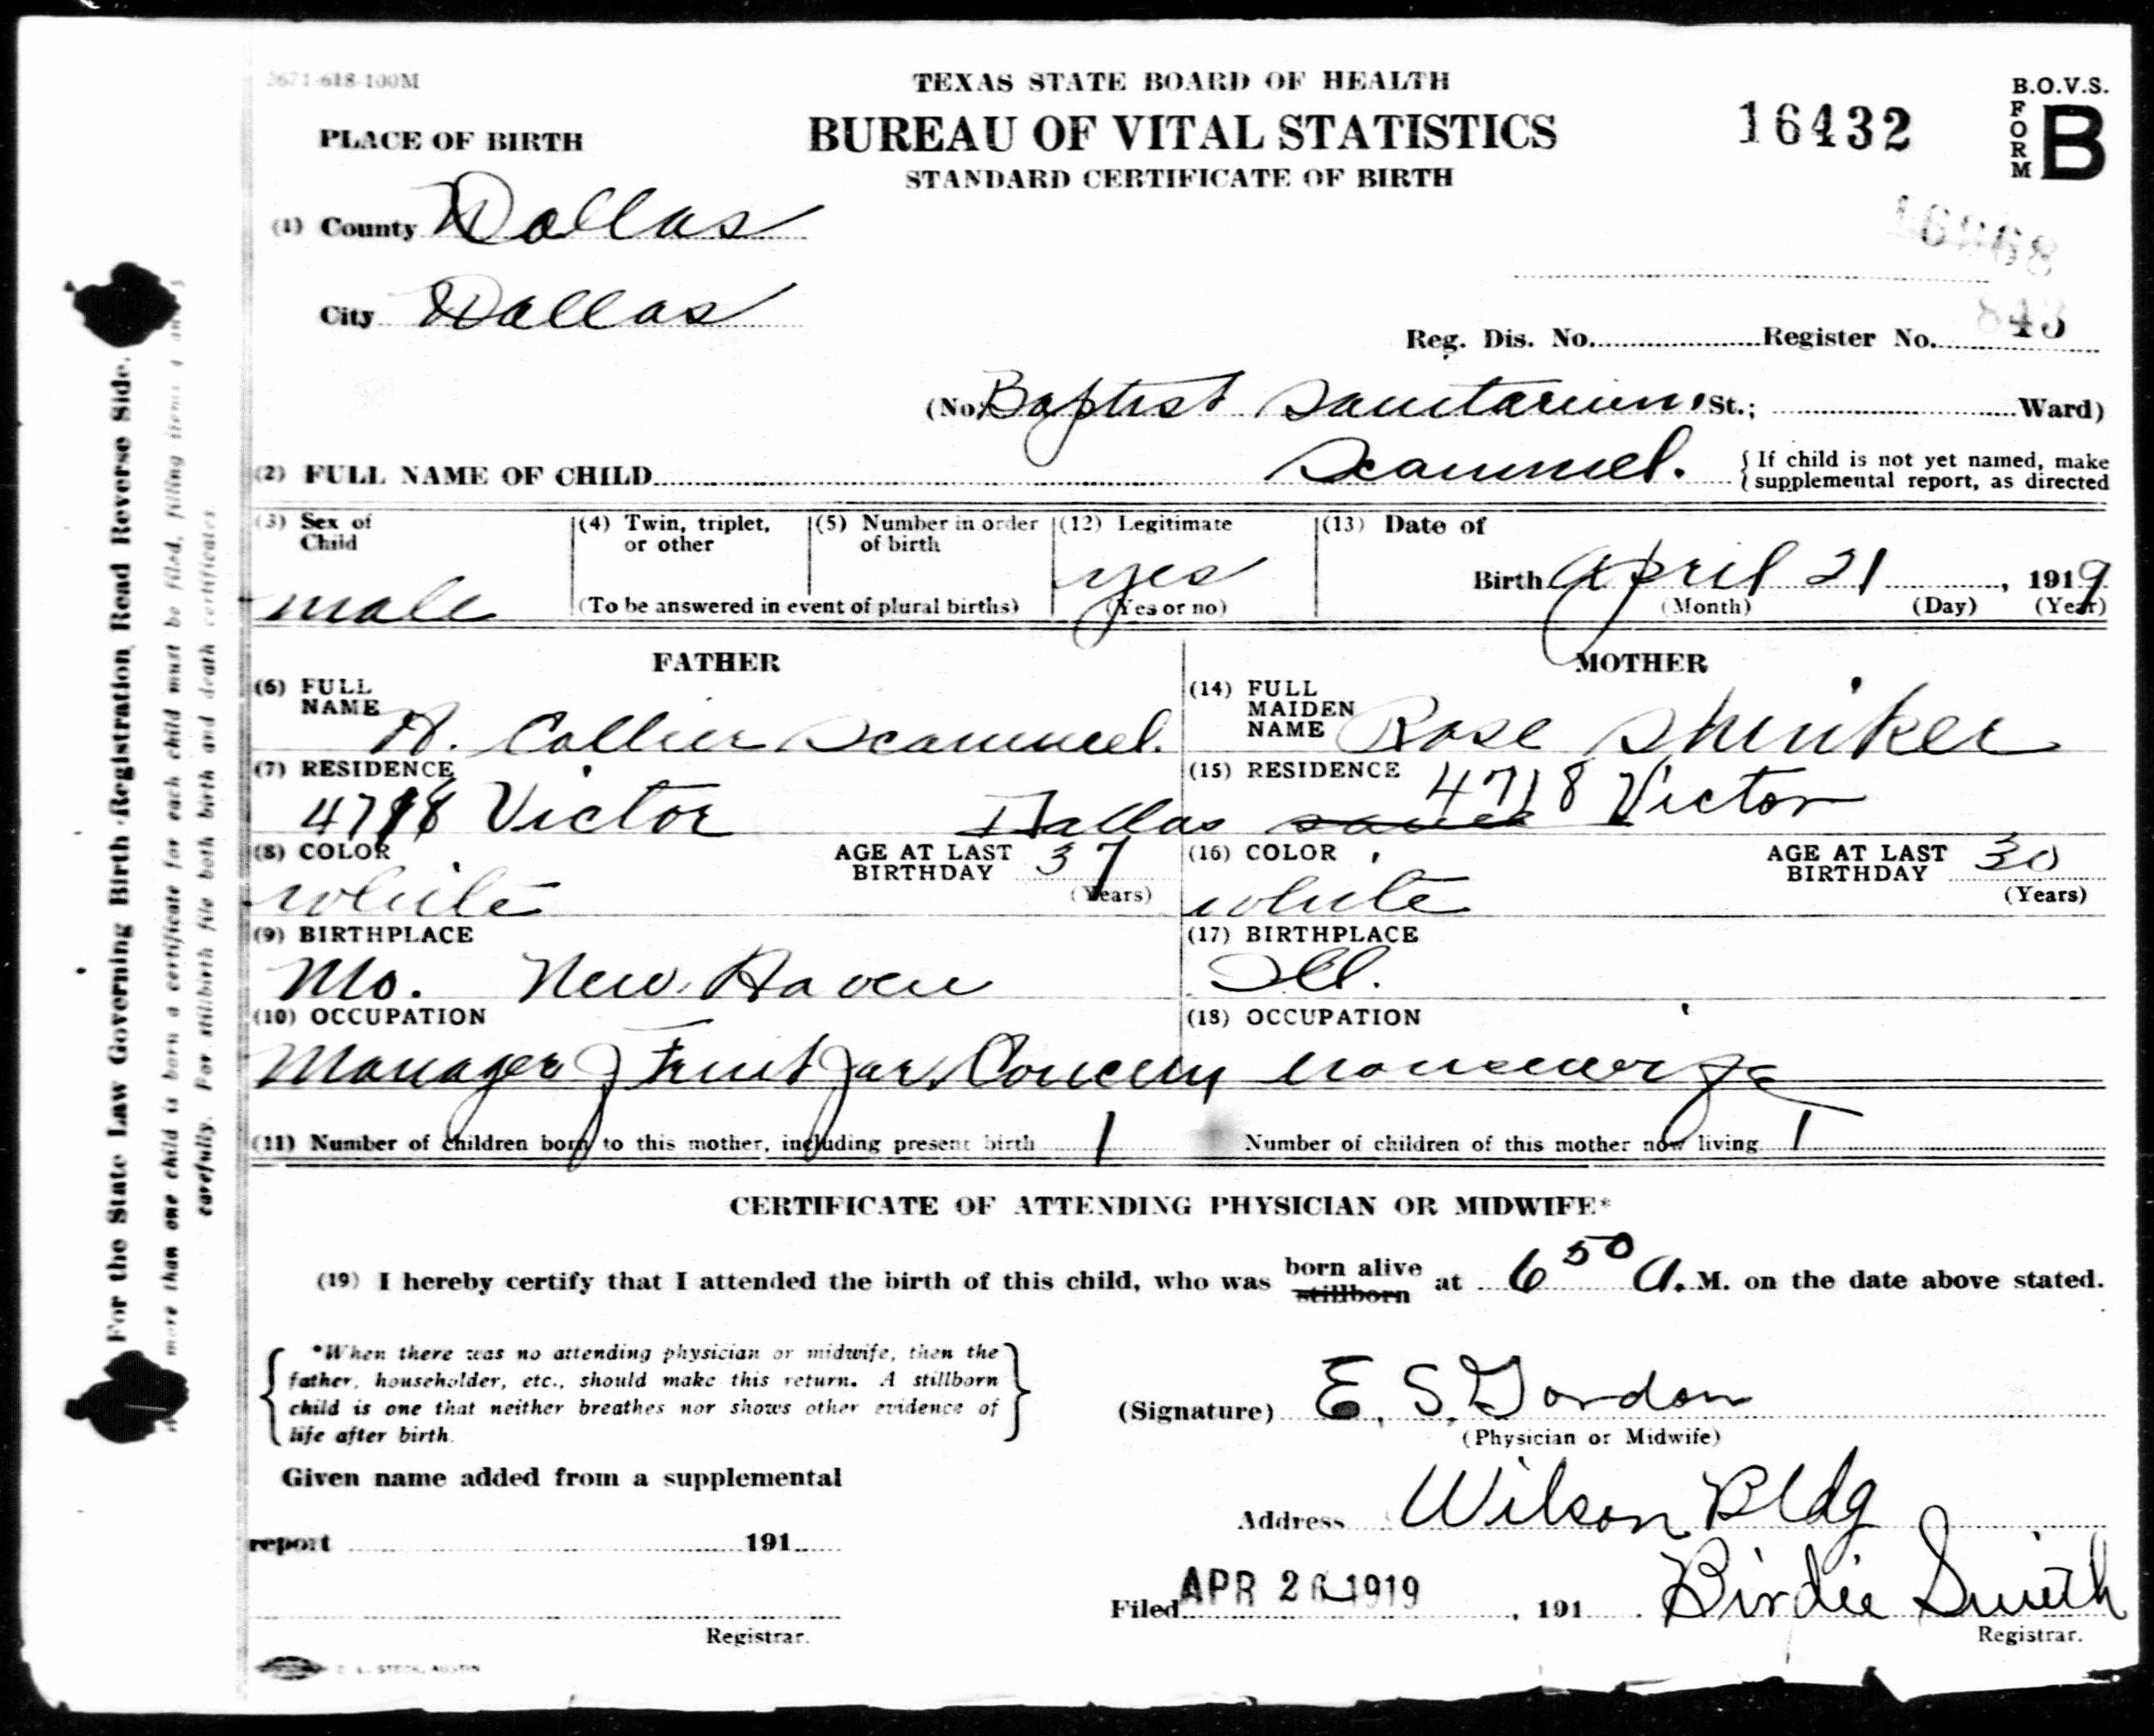 2671-618-100M
TEXAS STATE BOARD OF HEALTH
B.O.V.S.
FORM B
PLACE OF BIRTH
BUREAU OF VITAL STATISTICS
16432
STANDARD CERTIFICATE OF BIRTH
(1) County Dallas
City Dallas
Reg. Dis. No. Register No. 843
(No. Baptist Sanitarium, St.; Ward)
(2) FULL NAME OF CHILD Scammel. { If child is not yet named, make
supplemental report, as directed
(3) Sex of Child male
(4) Twin, triplet, or other
(5) Number in order of birth
(To be answered in event of plural births)
(12) Legitimate yes
(Yes or no)
(13) Date of
Birth April 21, 1919
(Month) (Day) (Year)
FATHER
(6) FULL NAME H. Collier Scammel.
(7) RESIDENCE
4718 Victor Dallas
(8) COLOR white
AGE AT LAST BIRTHDAY 37
(Years)
(9) BIRTHPLACE
Mo. New Haven
(10) OCCUPATION
Manager Fruit Jar
MOTHER
(14) FULL MAIDEN NAME Rose
(15) RESIDENCE 4718 Victor
same
(16) COLOR white
AGE AT LAST BIRTHDAY 30
(Years)
(17) BIRTHPLACE
Ill.
(18) OCCUPATION
housewife
(11) Number of children born to this mother, including present birth 1 Number of children of this mother now living 1
CERTIFICATE OF ATTENDING PHYSICIAN OR MIDWIFE*
(19) I hereby certify that I attended the birth of this child, who was born alive stillborn at 6 50 A. M. on the date above stated.
*When there was no attending physician or midwife, then the
father, householder, etc., should make this return. A stillborn
child is one that neither breathes nor shows other evidence of
life after birth.
(Signature) E. S. Gordon
(Physician or Midwife)
Given name added from a supplemental
report 191
Registrar.
Address Wilson Bldg
Filed APR 26 1919, 191 . Birdie Smith
Registrar.
STECK, AUSTIN
For the State Law Governing Birth Registration Read Reverse Side.
more than one child is born a certificate for each child must be filed, filling items 4 and 5
carefully. For stillbirth file both birth and death certificates.